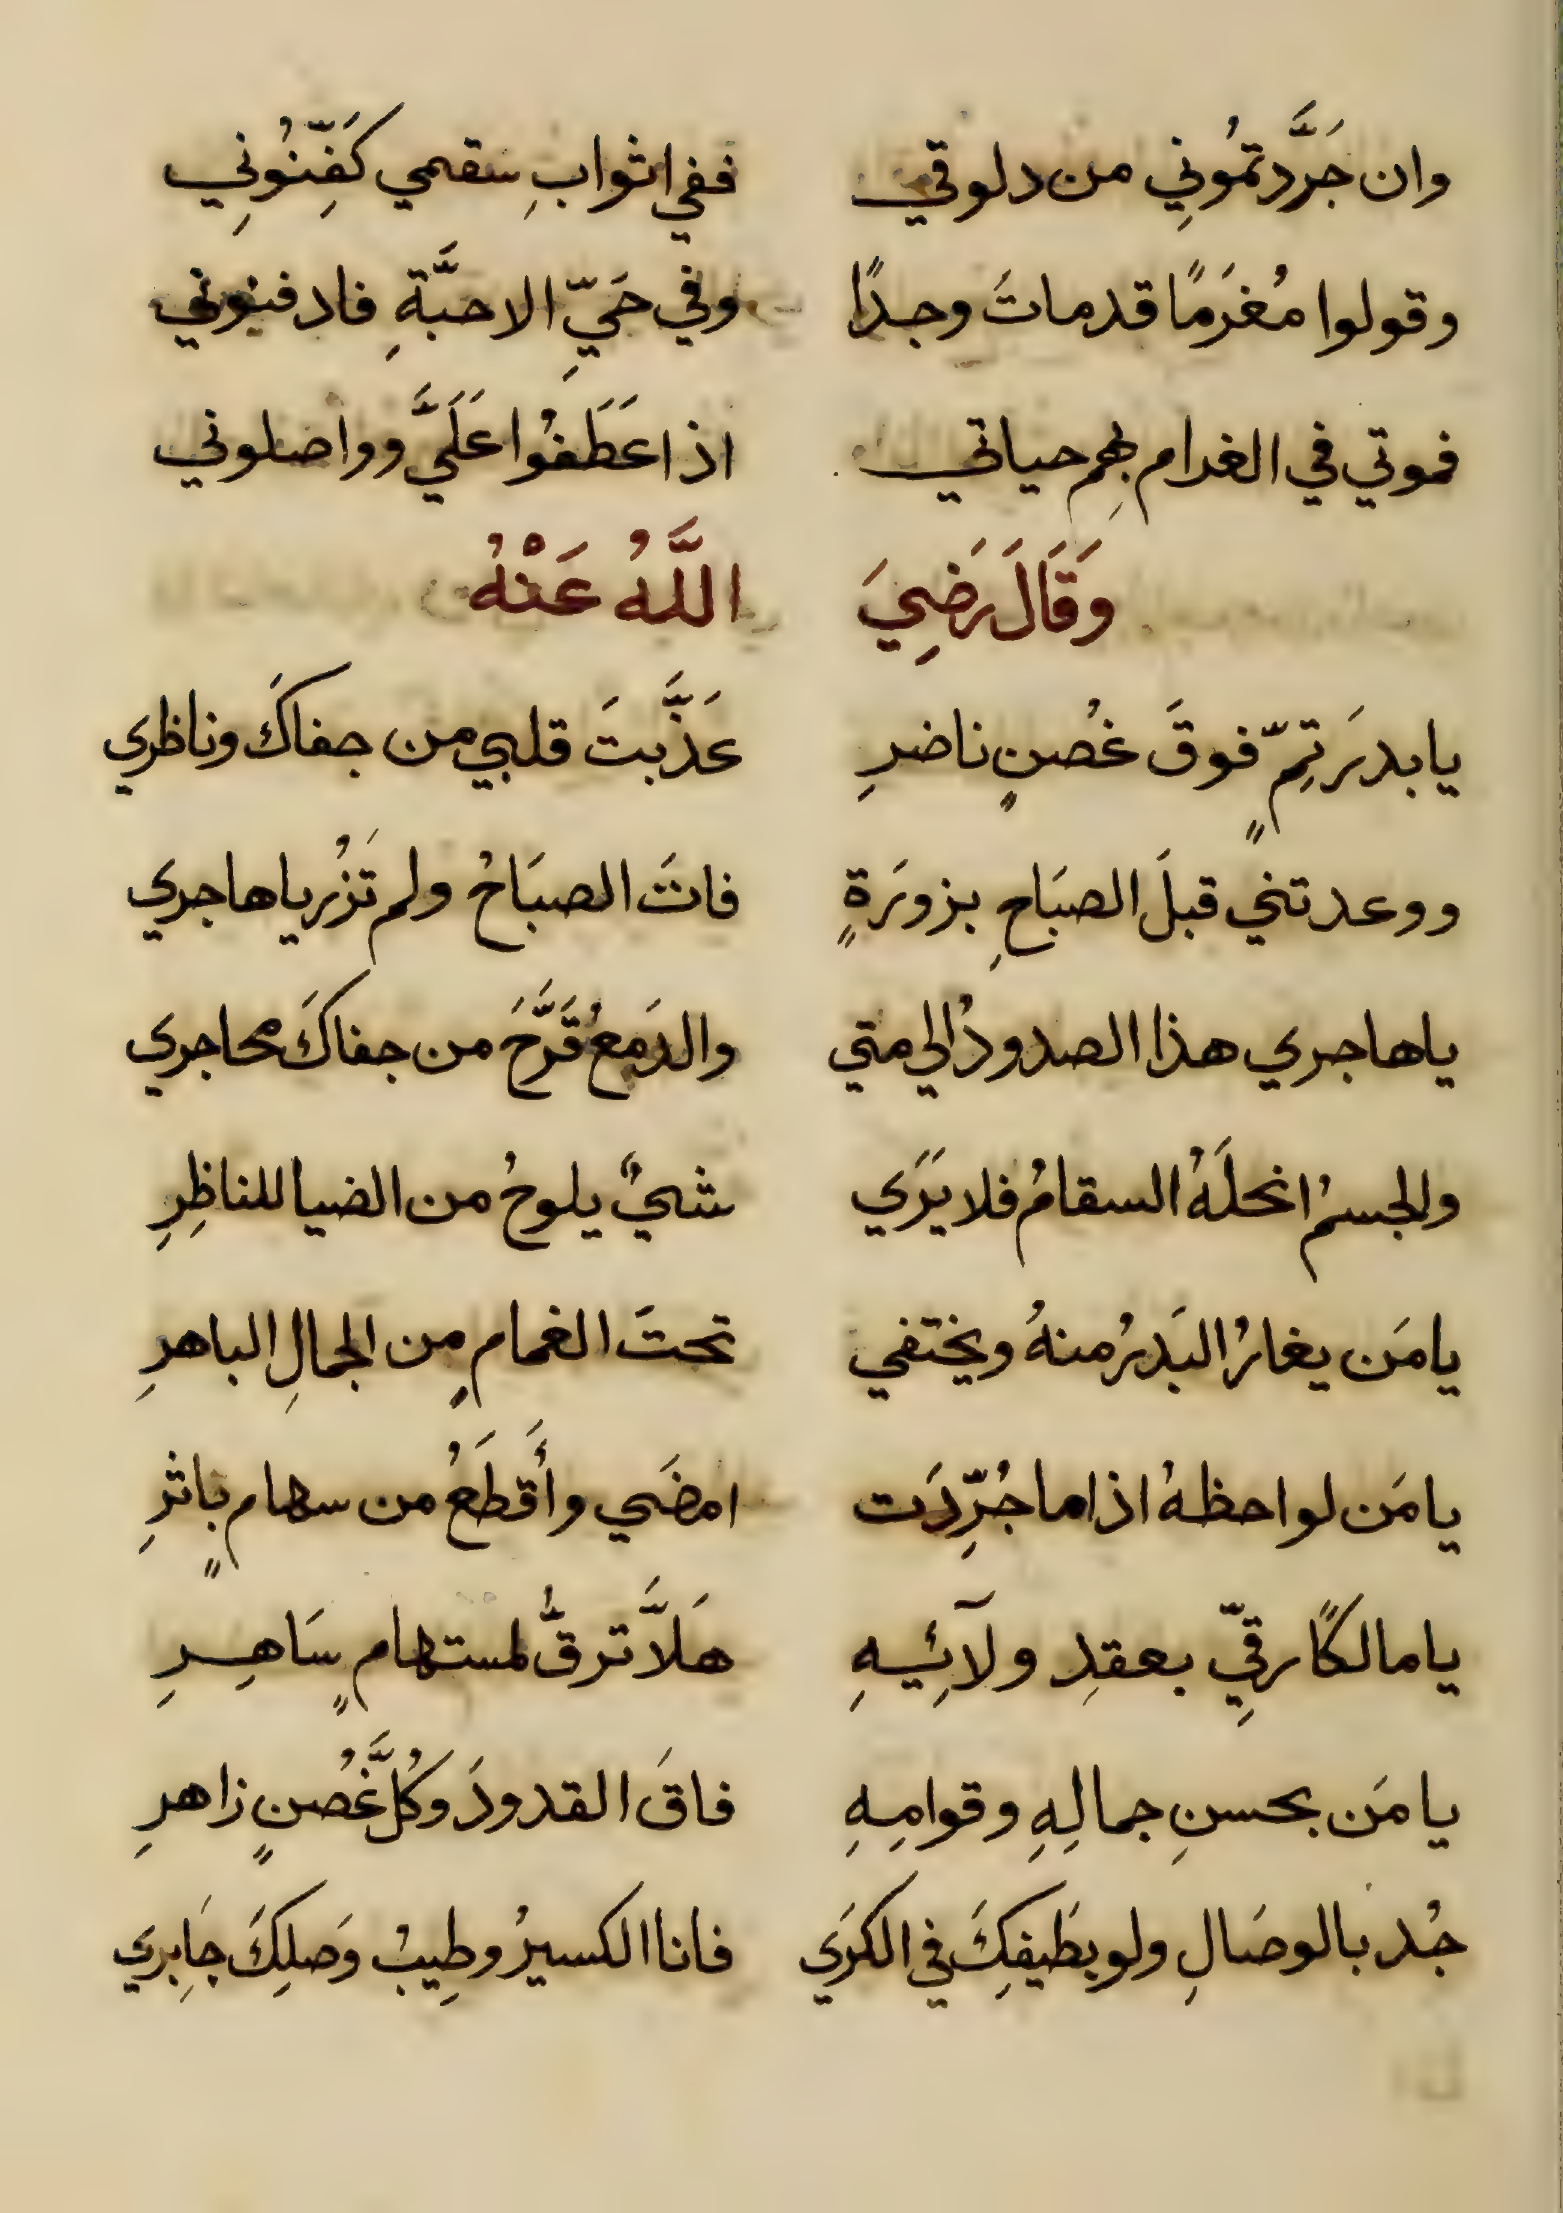 وان جَرَّدتمُونِي من دلوقي ففي اثوابِ سقمي كَفِّنُونِي
وقولوا مُغرَمًا قد ماتَ وجدًا وفي حَيِّ الاحبَّةِ فادفنوني
فموتي في الغرام بهِم حياتي اذا عَطَفُوا عَلَيَّ وواصلوني
وَقَالَ رَضِيَ اللَّهُ عَنْهُ
يا بدرَ تِمٍّ فوقَ غُصنٍ ناضرِ عَذَّبتَ قلبي من جفاكَ وناظرِي
ووعدتني قبلَ الصبَاحِ بزورَةٍ فاتَ الصبَاحُ ولم تَزُر يا هاجري
يا هاجري هذا الصدودُ الي متي والدَمعُ قَرَّحَ من جفاكَ محاجري
والجسمُ انحلَهُ السقامُ فلا يَرَي شيٌ يلوحُ من الضيا للناظِرِ
يا مَن يغارُ البَدرُ منهُ ويختفي تحتَ الغمامِ مِن الجمالِ الباهرِ
يا مَن لواحظهُ اذا ما جُرِّدَت امضَي وأَقطَعُ من سهامٍ باثرِ
يا مالكًا رقِّي بعقدِ ولآئِيهِ هَلاَّ ترقُّ لمستهامٍ سَاهِرِ
يا مَن بحسنِ جمالِهِ وقوامِهِ فاقَ القدودَ وكُلَّ غُصنٍ زاهرِ
جُد بالوصَالِ ولو بطَيفِكَ في الكرَي فانا الكسيرُ وطِيبُ وَصلِكَ جَابِري